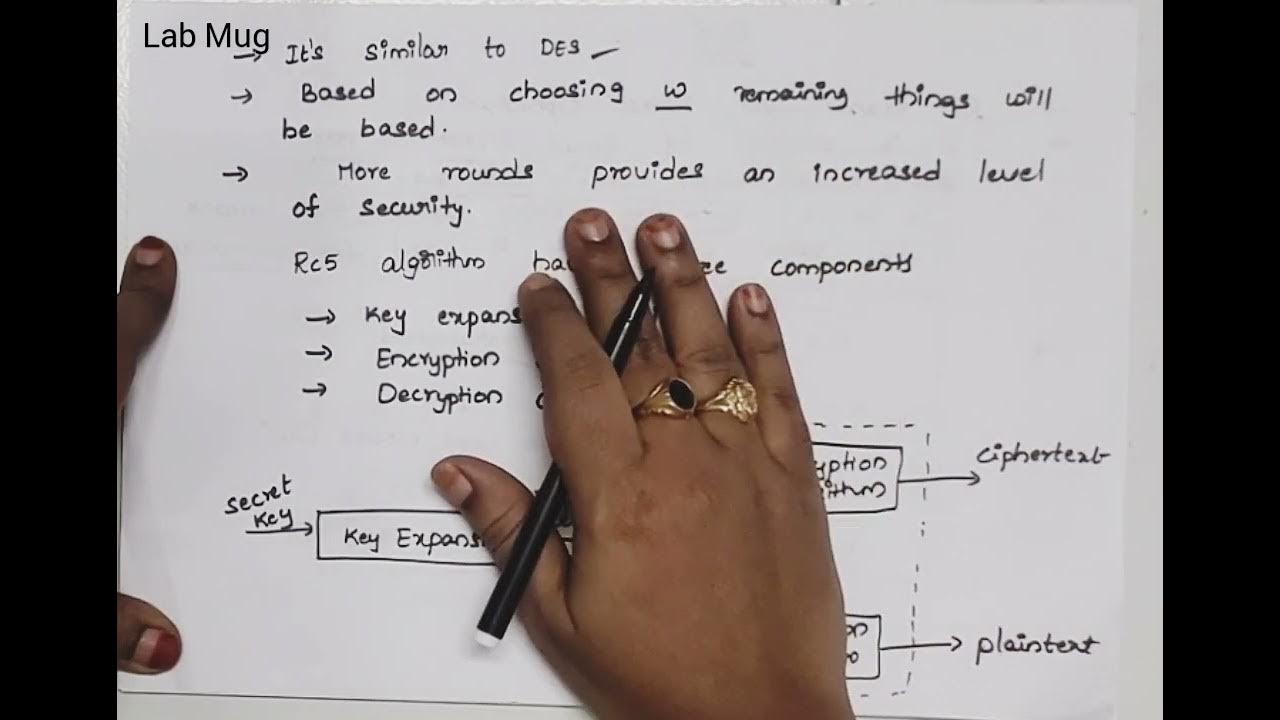 Lab Mug
→ It's similar to DES
→ Based on choosing w remaining things will
be based.
→ More rounds provides an increased level
of security.
Rc5 algorithm components
→ Key
→ Encryption
→ Decryption
ciphertext
secret
key
Key
plaintext